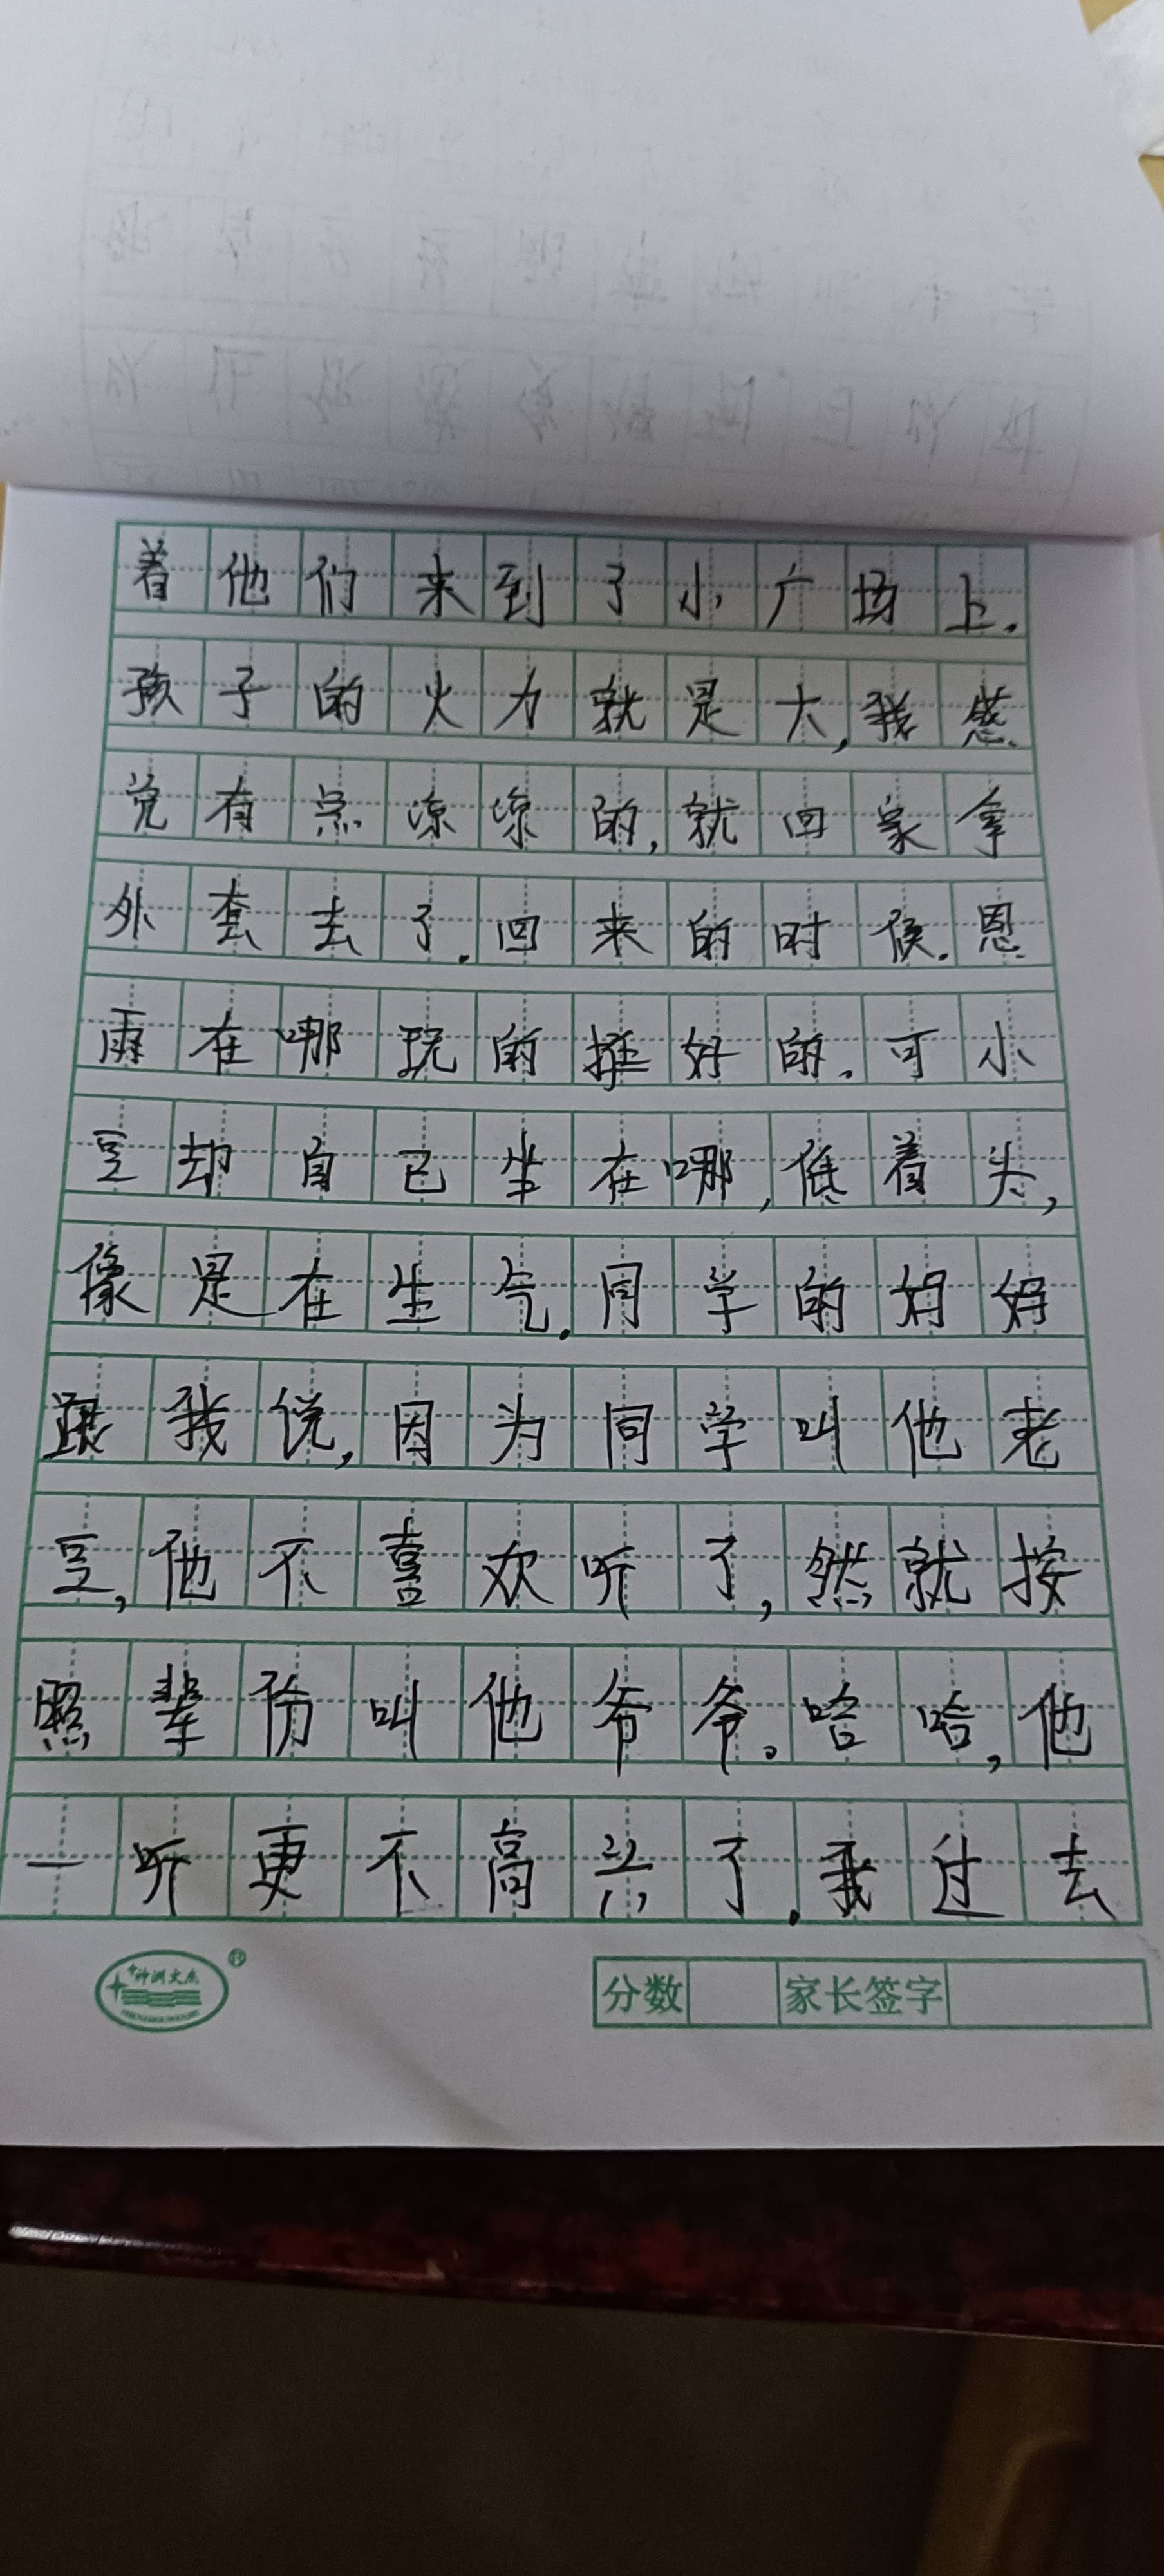 着他们来到了小广场上.
孩子的火力就是大,我感
觉有点凉凉的,就回家拿
外套去了.回来的时候.恩
雨在哪玩的挺好的.可小
豆却自己坐在哪,低着头,
像是在生气.同学的妈妈
跟我说,因为同学叫他老
豆,他不喜欢听了,然就按
照辈份叫他爷爷。哈哈,他
一听更不高兴了.我过去
神洲文具
分数 家长签字